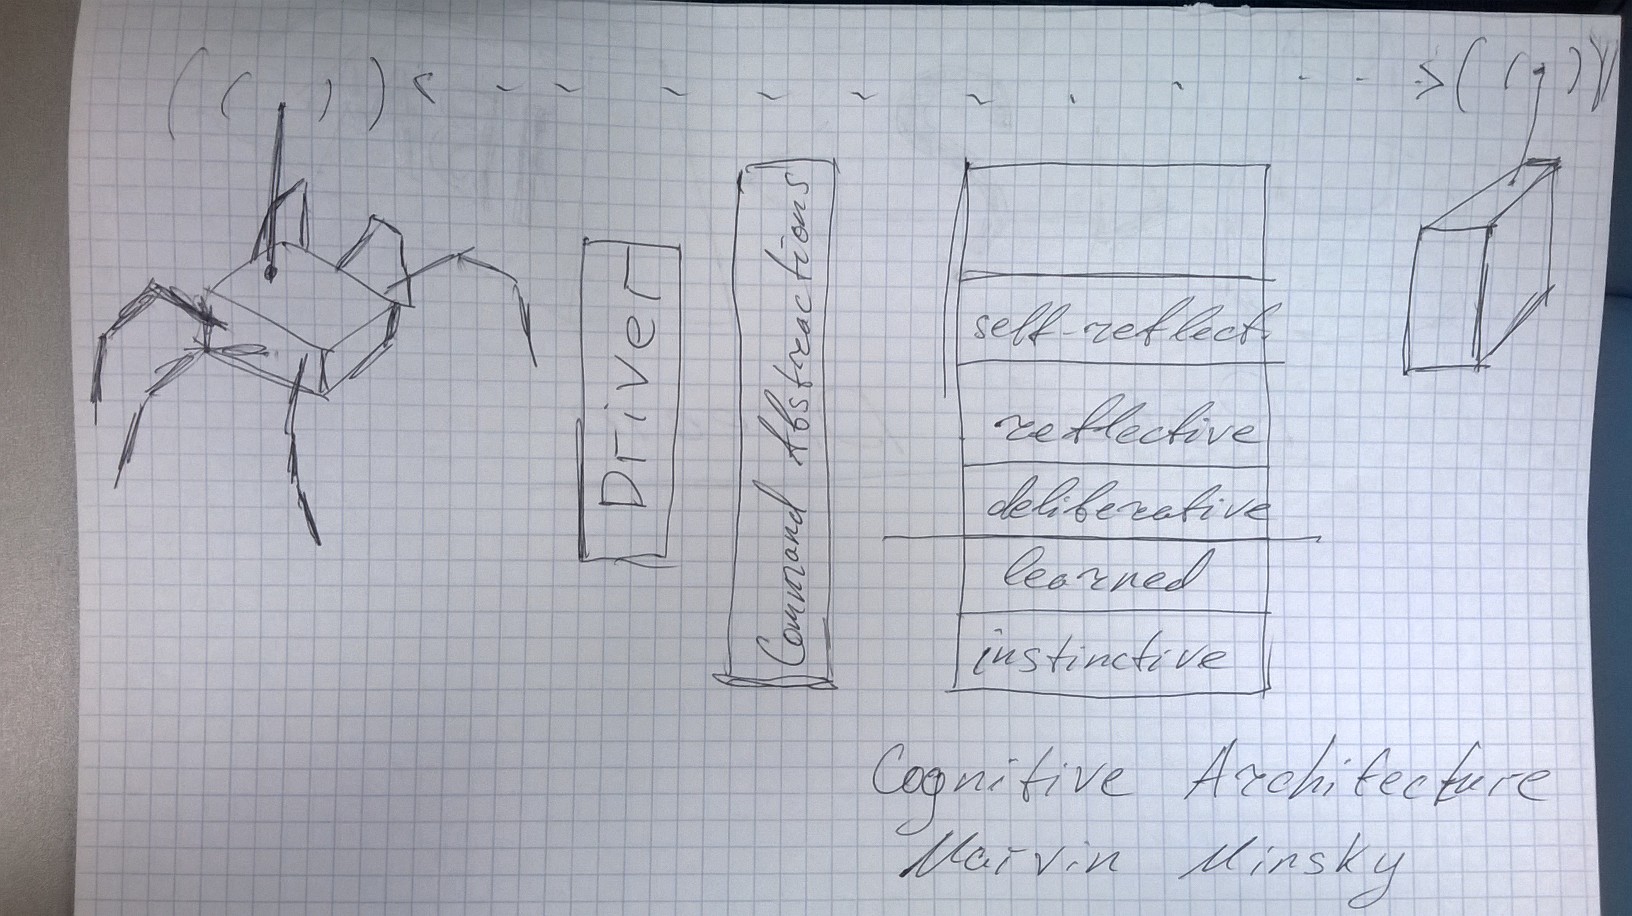 Driver
Command Abstractions
self-reflect.
reflective
deliberative
learned
instinctive
Cognitive Architecture
Marvin Minsky